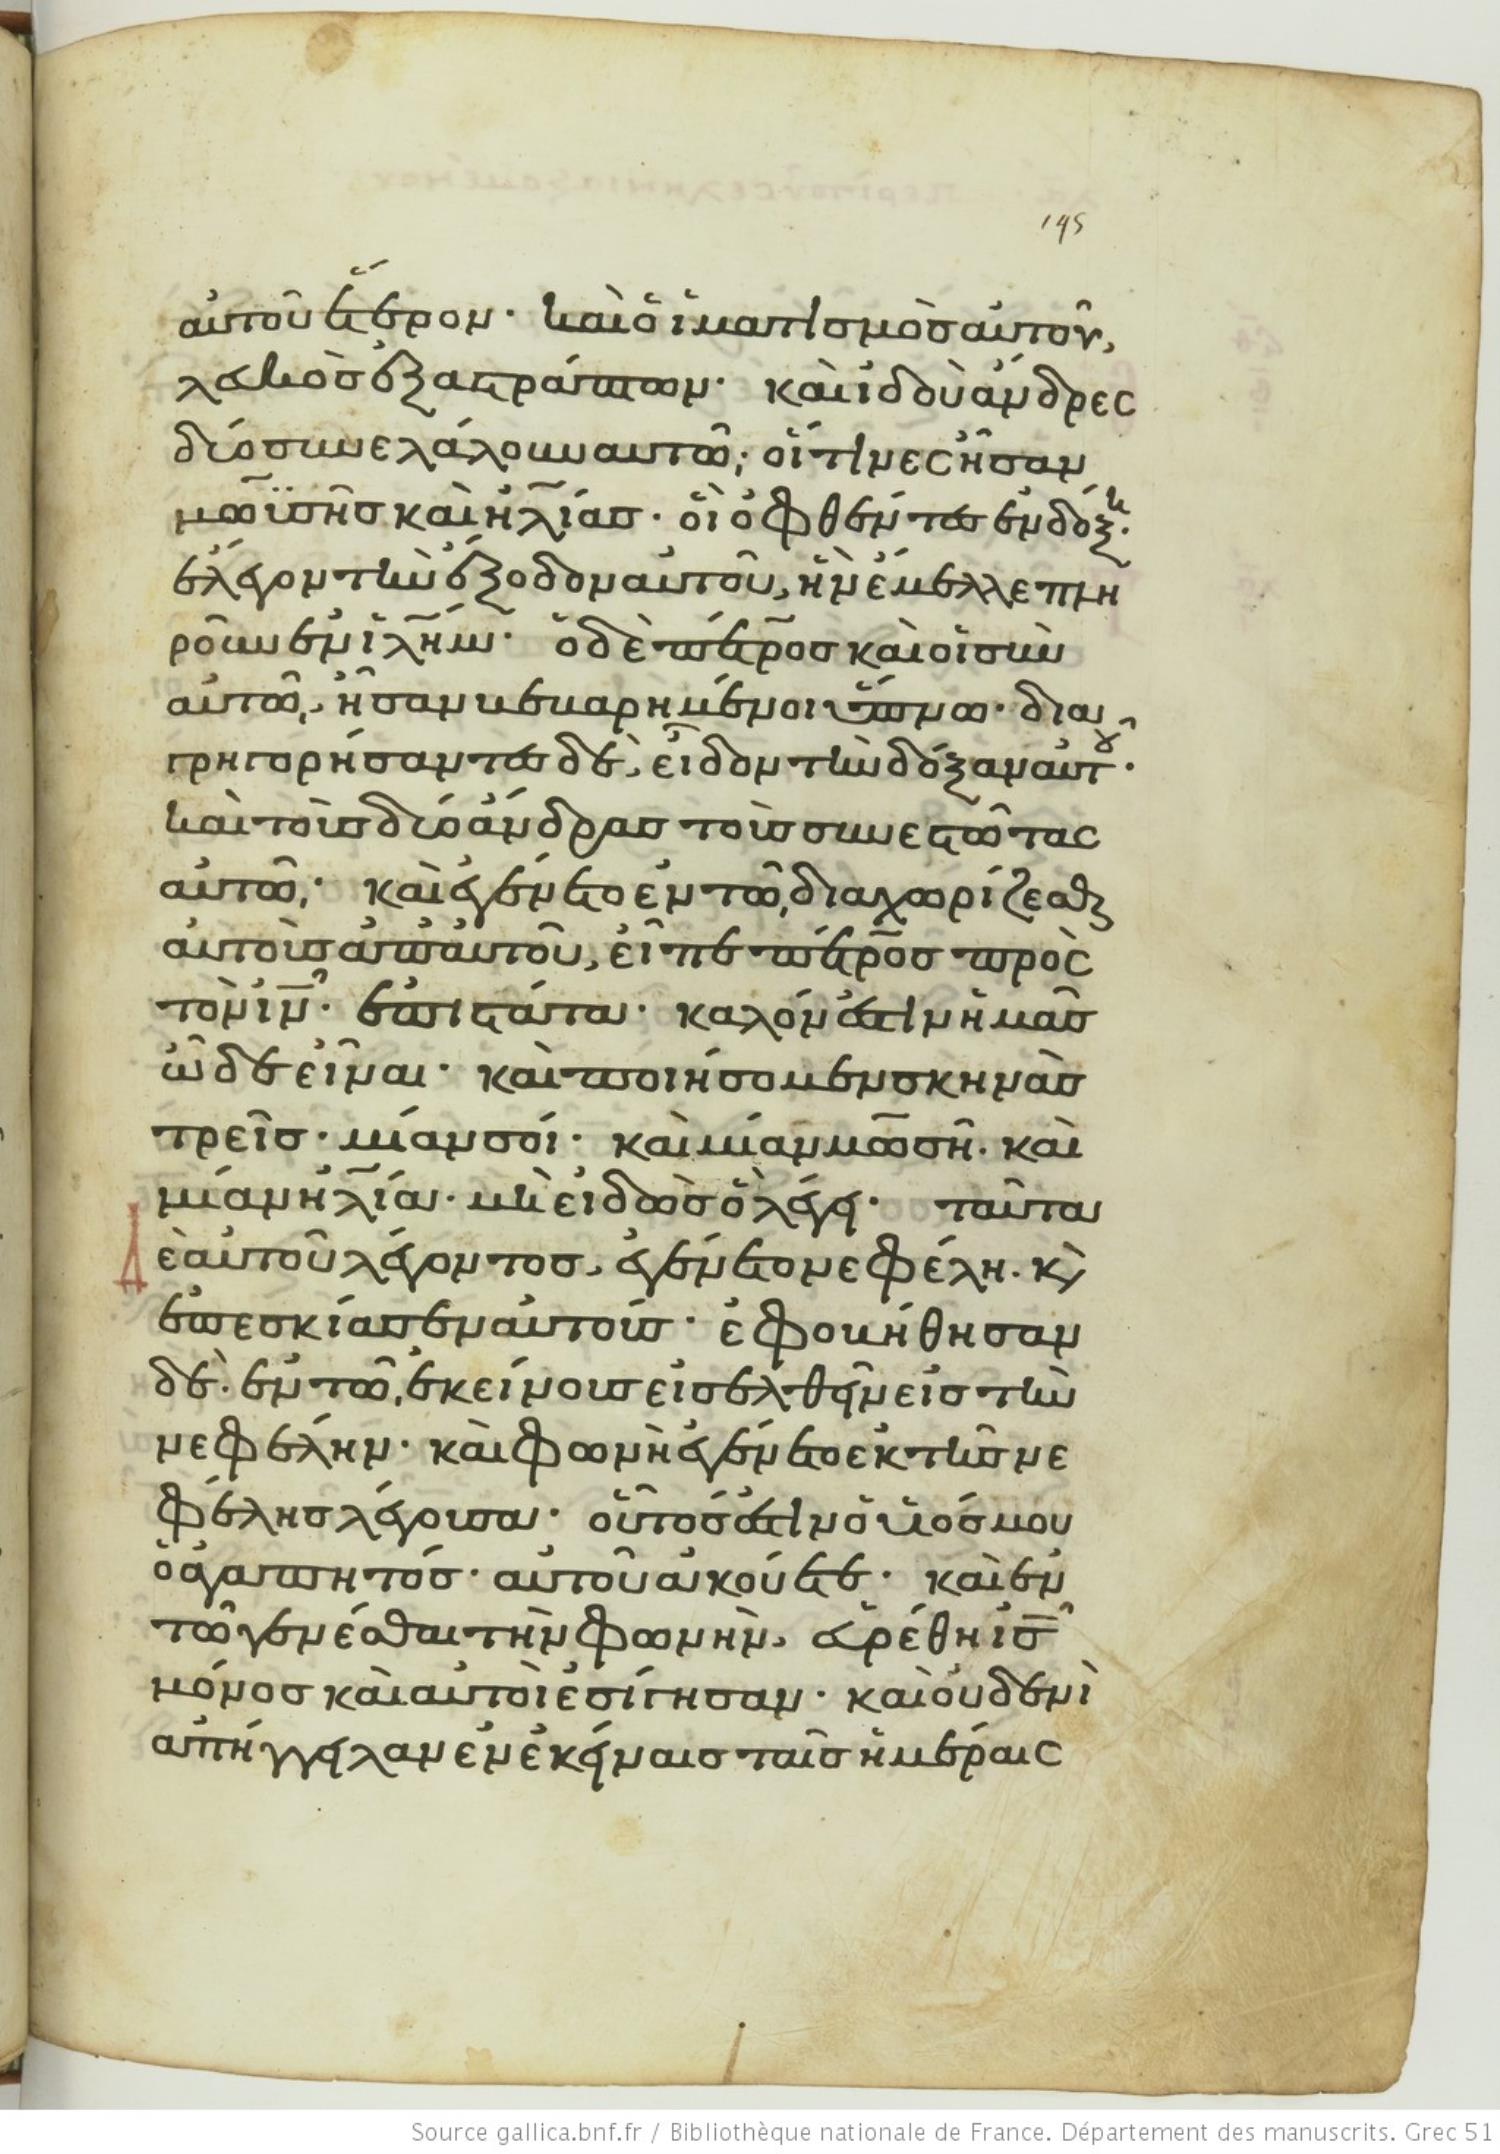 195
αὐτοῦ ἕτερον· καὶ ὁ ἱματισμὸς αὐτοῦ,
λευκὸς ἐξαστράπτων· καὶ ἰδοὺ ἄνδρες
δύο συνελάλουν αὐτῶ, οἵτινες ἦσαν
μωϋσῆς καὶ ἠλίας· οἳ ὀφθέντες ἐν δόξη·
ἔλεγον τὴν ἔξοδον αὐτοῦ, ἣν ἔμελλε πλη
ροῦν ἐν ἰλημ· ὁ δὲ πέτρος καὶ οἱ σὺν
αὐτῶ, ἦσαν βεβαρημένοι ὕπνω· δια
γρηγορήσαντες δὲ, εἶδον τὴν δόξαν αὐτοῦ·
καὶ τοὺς δύο ἄνδρας τοὺς συνεστῶτας
αὐτῶ· καὶ ἐγένετο ἐν τῶ διαχωρίζεσθαι
αὐτοὺς ἀπ' αὐτοῦ, εἶπε πέτρος πρὸς
τὸν ιν· ἐπιστάτα· καλόν ἐστιν ἡμᾶς
ὧδε εἶναι· καὶ ποιήσομεν σκηνὰς
τρεῖς· μίαν σοί· καὶ μίαν μωσῆ· καὶ
μίαν ἠλία· μὴ εἰδὼς ὃ λέγει· ταῦτα
δὲ αὐτοῦ λέγοντος, ἐγένετο νεφέλη· κὶ
ἐπεσκίασεν αὐτούς· ἐφοβήθησαν
δὲ· ἐν τῶ ἐκείνους εἰσελθεῖν εἰς τὴν
νεφέλην· καὶ φωνὴ ἐγένετο ἐκ τῆς νε
φέλης λέγουσα· οὗτός ἐστιν ὁ υἱός μου
ὁ ἀγαπητός· αὐτοῦ ἀκούετε· καὶ ἐν
τῶ γενέσθαι τὴν φωνὴν, εὑρέθη ις
μόνος καὶ αὐτοὶ ἐσίγησαν· καὶ οὐδενὶ
ἀπήγγειλαν ἐν ἐκείναις ταῖς ἡμέραις
Source gallica.bnf.fr / Bibliothèque nationale de France. Département des manuscrits. Grec 51